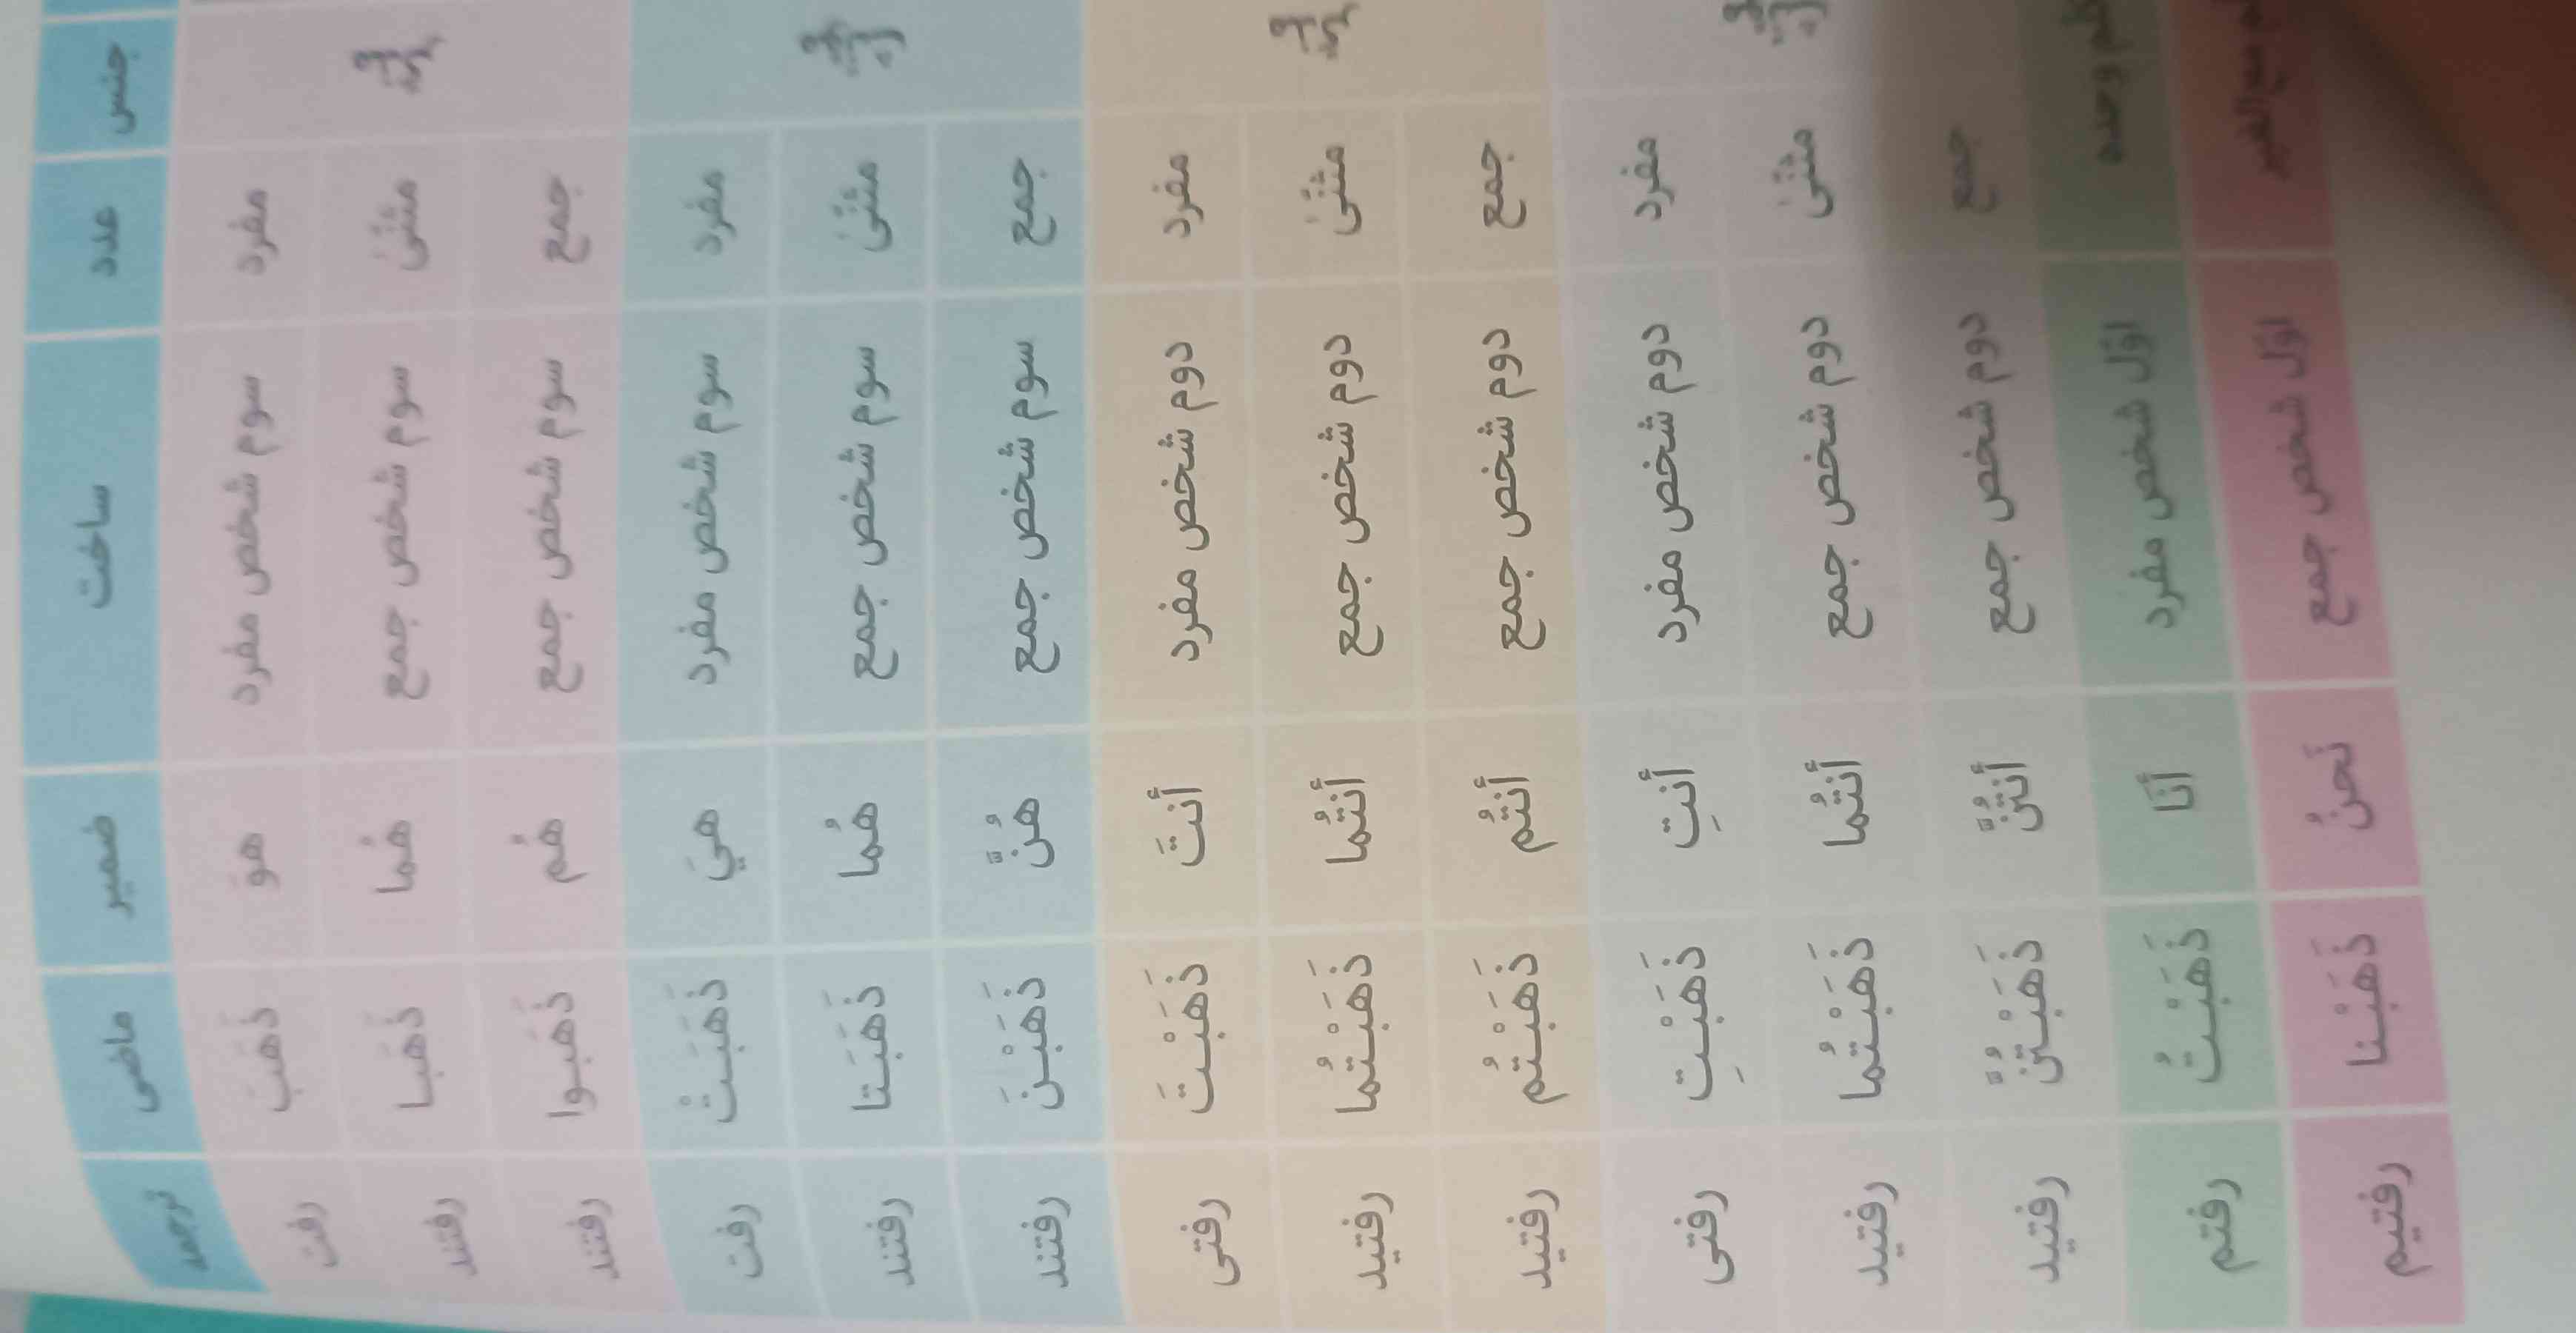 جنس عدد ساخت ضمیر ماضی ترجمه
مذکّر
مفرد سوم شخص مفرد هوَ ذَهَبَ رفت
مثنّیٰ سوم شخص جمع هُما ذَهَبا رفتند
جمع سوم شخص جمع هُم ذَهَبوا رفتند
مفرد سوم شخص مفرد هيَ ذَهَبَتْ رفت
مثنّیٰ سوم شخص جمع هُما ذَهَبَتا رفتند
جمع سوم شخص جمع هُنَّ ذَهَبْنَ رفتند
مفرد دوم شخص مفرد أنتَ ذَهَبْتَ رفتی
مثنّیٰ دوم شخص جمع أنتُما ذَهَبْتُما رفتید
جمع دوم شخص جمع أنتُم ذَهَبْتُم رفتید
مفرد دوم شخص مفرد أنتِ ذَهَبْتِ رفتی
مثنّیٰ دوم شخص جمع أنتُما ذَهَبْتُما رفتید
جمع دوم شخص جمع أنتُنَّ ذَهَبْتُنَّ رفتید
وحده اوّل شخص مفرد أنَا ذَهَبْتُ رفتم
مع الغیر اوّل شخص جمع نَحنُ ذَهَبْنا رفتیم